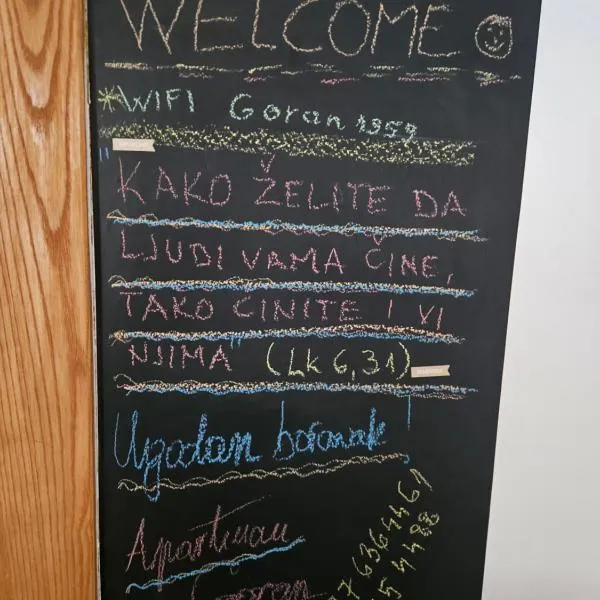 WELCOME
*WIFI Goran 1959
"KAKO ŽELITE DA
LJUDI VAMA CINE,
TAKO CINITE I VI
NJIMA" (Lk 6,31)
Ugodan boravak!
Apartman
Goran